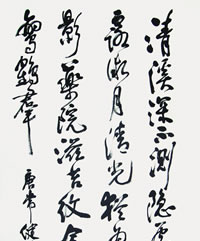 清溪深不测隐
露微月清光猶為
影藥院滋苔紋余
鸞鶴群 唐常健